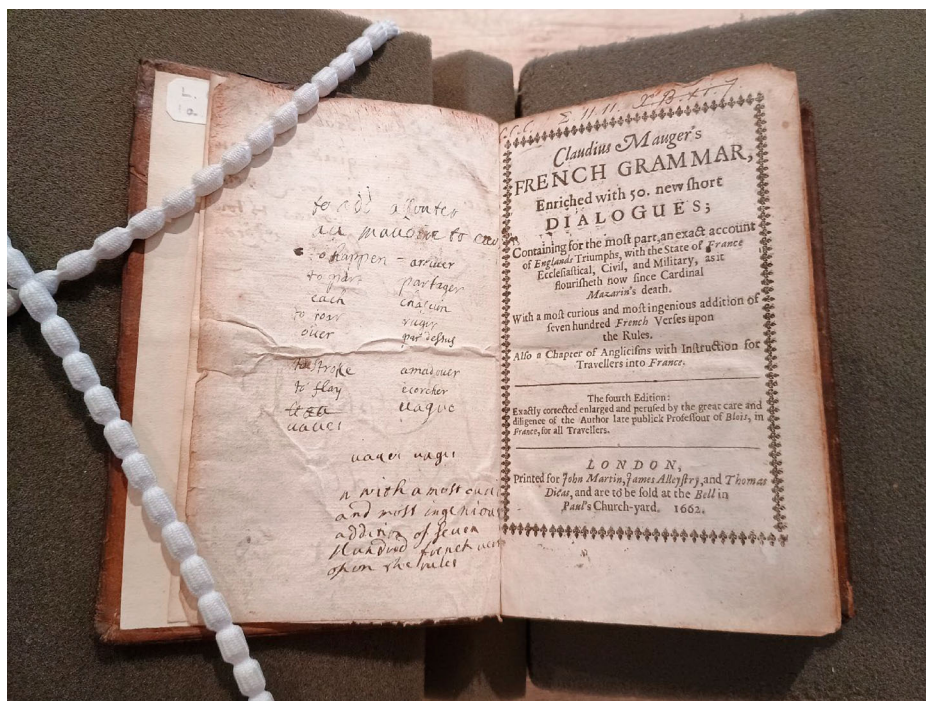 to add ajouter
to happen - arriver
to part partager
each chacun
over par dessus
to stroke amadouer
to flay écorcher
vague
with a most
and most ingenious
addition of seven
Hundred french
upon the rules
Claudius Mauger's
FRENCH GRAMMAR,
Enriched with 50. new ſhort
DIALOGUES;
Containing for the moſt part, an exact account
of Englands Triumphs, with the State of France
Eccleſiaſtical, Civil, and Military, as it
flouriſheth now ſince Cardinal
Mazarin's death.
With a moſt curious and moſt ingenious addition of
ſeven hundred French Verſes upon
the Rules.
Alſo a Chapter of Angliciſms with Inſtruction for
Travellers into France.
The fourth Edition:
Exactly corrected enlarged and peruſed by the great care and
diligence of the Author late publick Profeſſour of Blois, in
France, for all Travellers.
LONDON,
Printed for John Martin, James Alleſtry, and Thomas
Dicas, and are to be ſold at the Bell in
Paul's Church-yard. 1662.